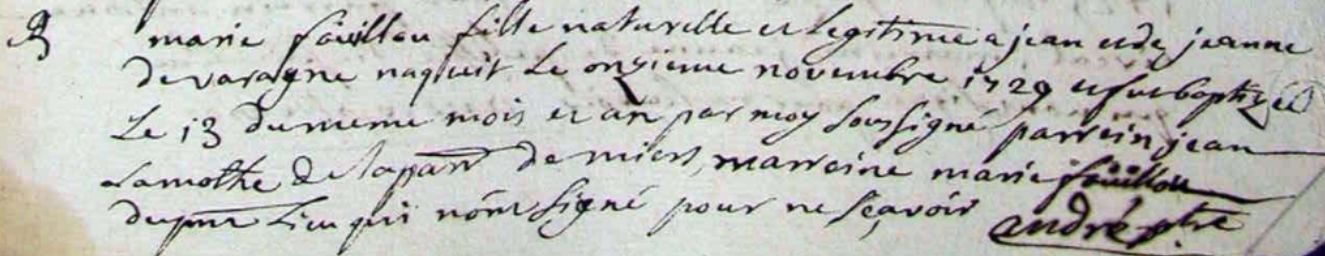 B
marie fouillou fille naturelle et legitime a jean et de jeanne
de varagne naquit le onzieme novembre 1729 et fut baptizée
Le 13 du meme mois et an par moy soussigné parrein jean
Lamothe de la parr de miers, marreine marie fouillou
du pnt Lieu qui n'ont signé pour ne sçavoir andré ptre